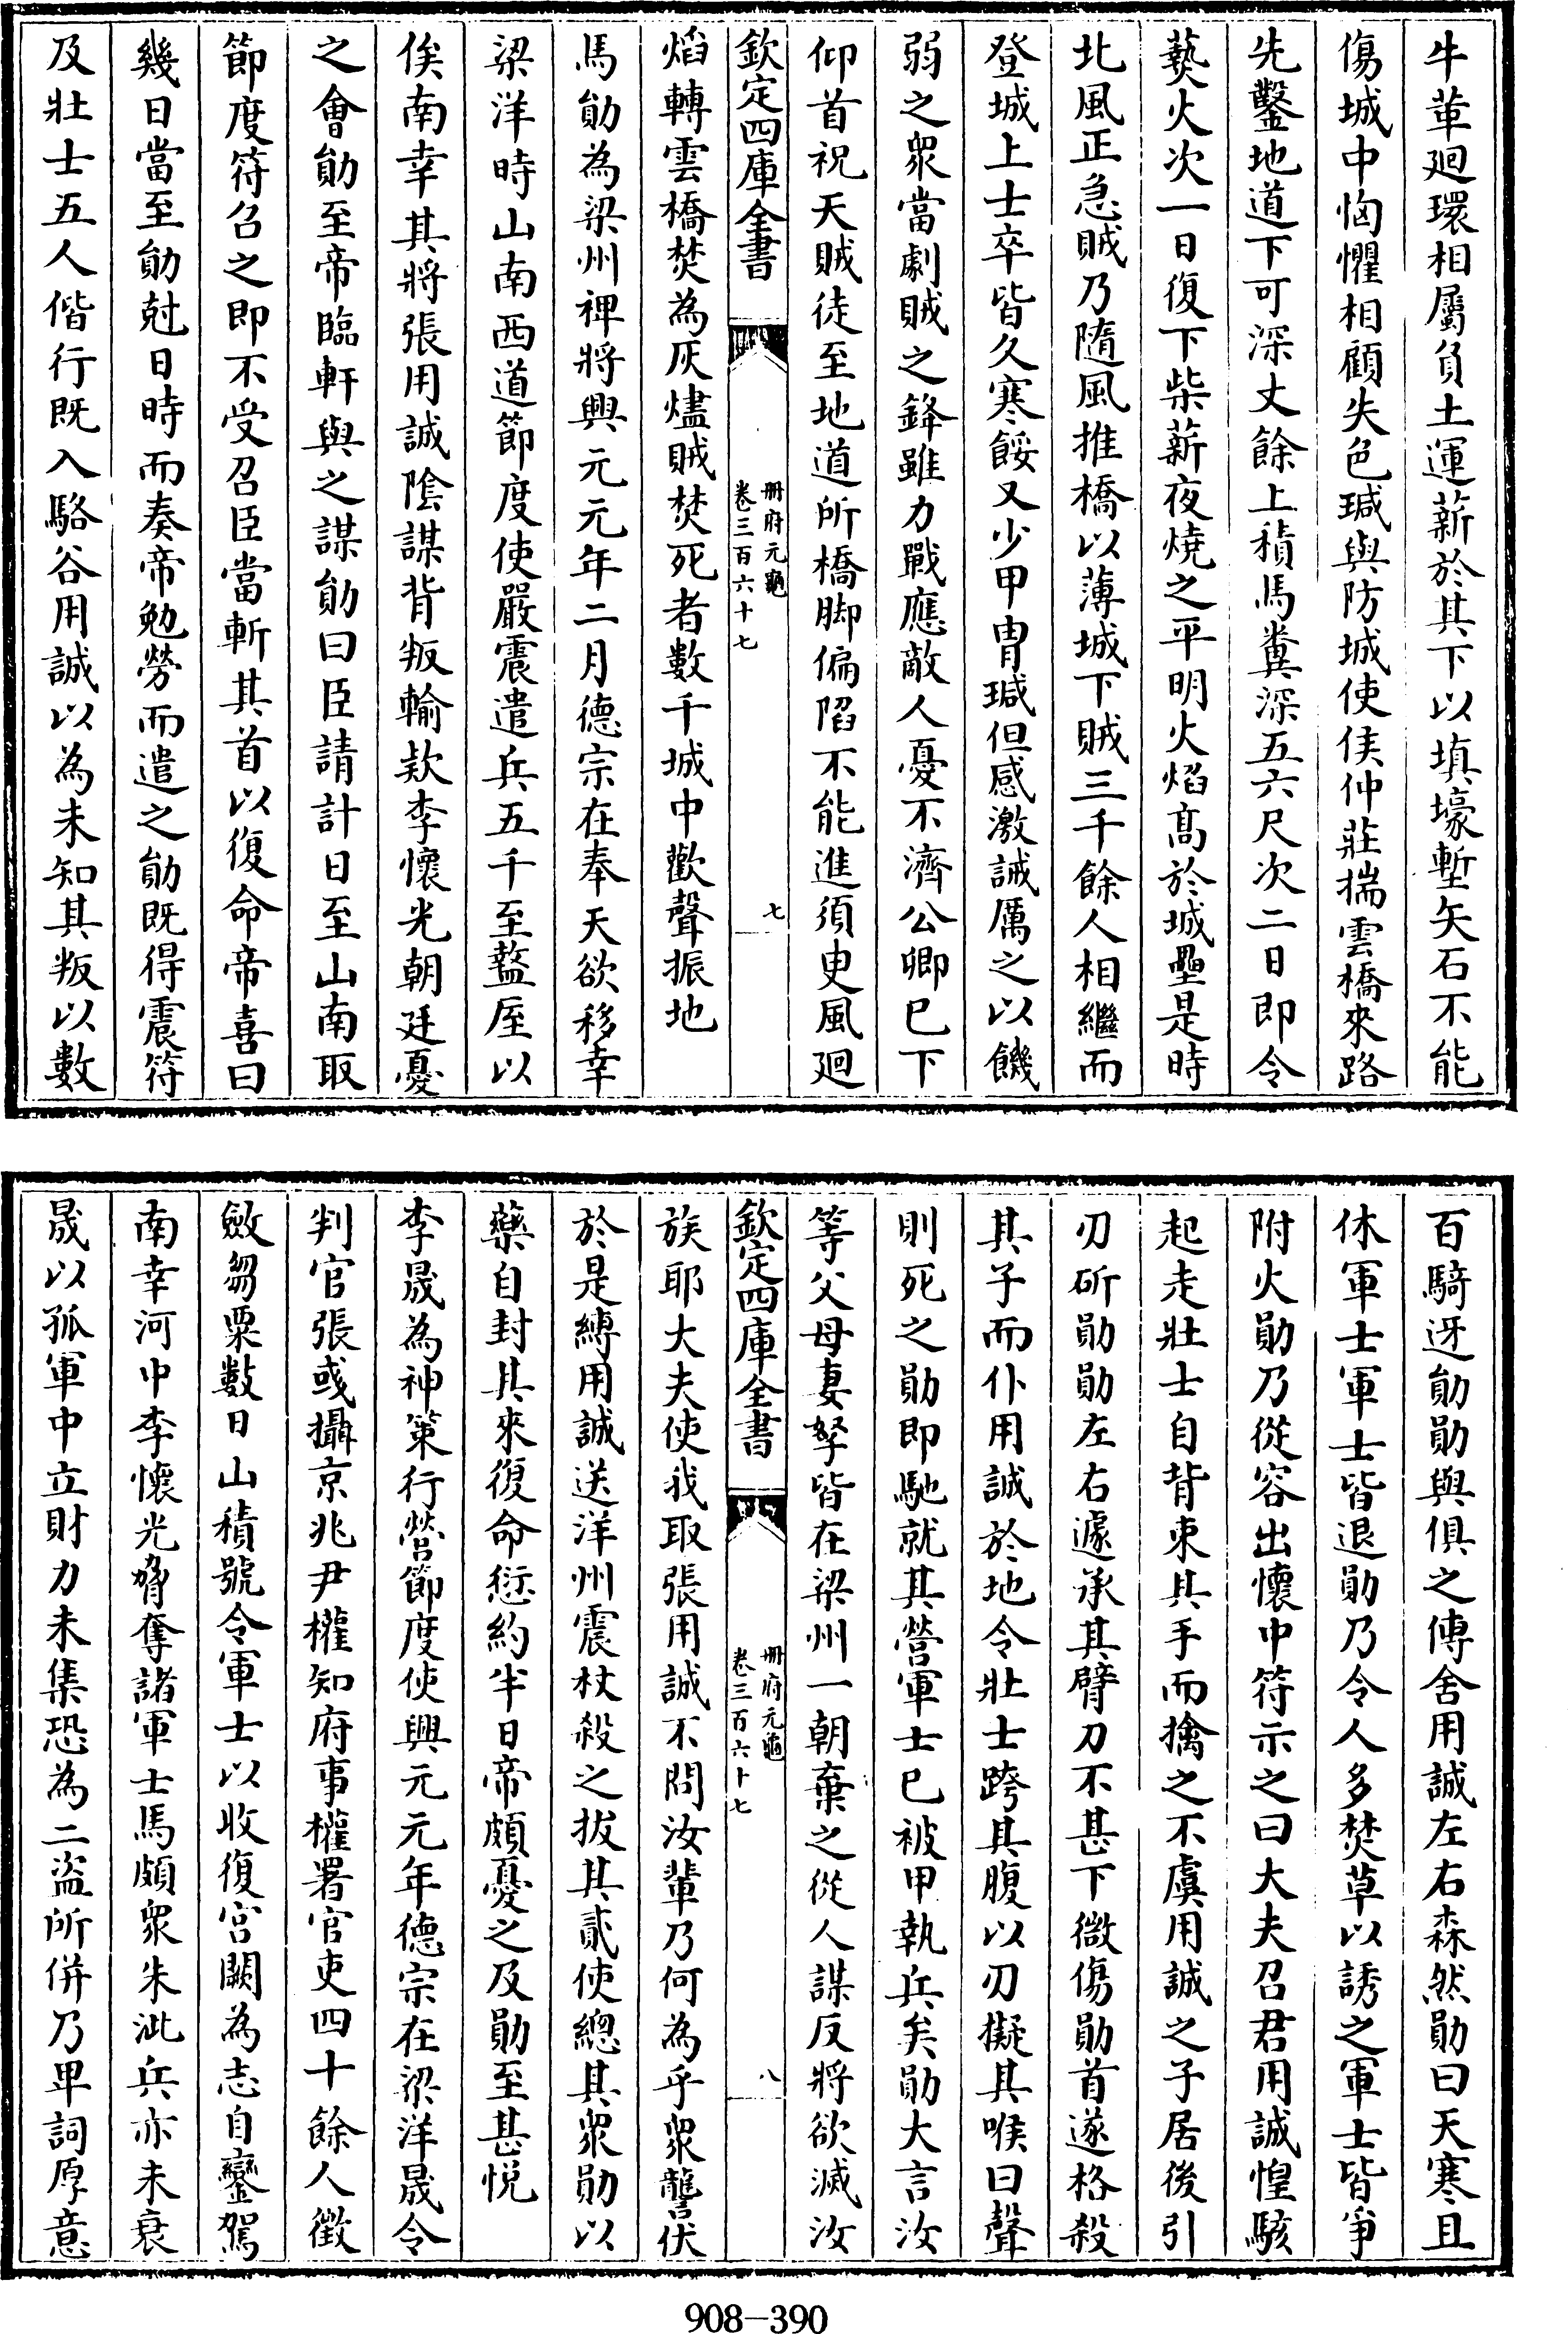 牛革廻環相屬負土運薪於其下以填壕塹矢石不能
傷城中恟懼相顧失色瑊與防城使侯仲莊揣雲橋來路
先鑿地道下可深丈餘上積馬糞深五六尺次二日即令
爇火次一日復下柴薪夜燒之平明火焰髙於城壘是時
北風正急賊乃隨風推橋以薄城下賊三千餘人相繼而
登城上士卒皆久寒餒又少甲胄瑊但感激誡厲之以饑
弱之衆當劇賊之鋒雖力戰應敵人憂不濟公卿已下
仰首祝天賊徒至地道所橋脚偏陷不能進須㬰風廻
欽定四庫全書
冊府元龜
卷三百六十七
七
焰轉雲橋焚為灰燼賊焚死者數千城中歡聲振地
馬勛為梁州裨將興元元年二月德宗在奉天欲移幸
梁洋時山南西道節度使嚴震遣兵五千至盩厔以
俟南幸其將張用誠隂謀背叛輸欵李懷光朝廷憂
之會勛至帝臨軒與之謀勛曰臣請計日至山南取
節度符召之即不受召臣當斬其首以復命帝喜曰
幾日當至勛尅日時而奏帝勉勞而遣之勛既得震符
及壯士五人偕行既入駱谷用誠以為未知其叛以數
百騎迓勛勛與俱之傳舍用誠左右森然勛曰天寒且
休軍士軍士皆退勛乃令人多焚草以誘之軍士皆爭
附火勛乃從容出懷中符示之曰大夫召君用誠惶駭
起走壯士自背束其手而擒之不虞用誠之子居後引
刃斫勛勛左右遽承其臂刀不甚下微傷勛首遂格殺
其子而仆用誠於地令壯士跨其腹以刃擬其喉曰聲
則死之勛即馳就其營軍士已被甲執兵矣勛大言汝
等父母妻孥皆在梁州一朝棄之從人謀反將欲滅汝
欽定四庫全書
冊府元龜
卷三百六十七
八
族耶大夫使我取張用誠不問汝輩乃何為乎衆讋伏
於是縛用誠送洋州震杖殺之拔其貳使總其衆勛以
藥自封其來復命愆約半日帝頗憂之及勛至甚悦
李晟為神策行營節度使興元元年德宗在梁洋晟令
判官張彧攝京兆尹權知府事權署官吏四十餘人徵
斂芻粟數日山積號令軍士以收復宫闕為志自鑾駕
南幸河中李懷光脅奪諸軍士馬頗衆朱泚兵亦未衰
晟以孤軍中立財力未集恐為二盗所併乃卑詞厚意
908-390